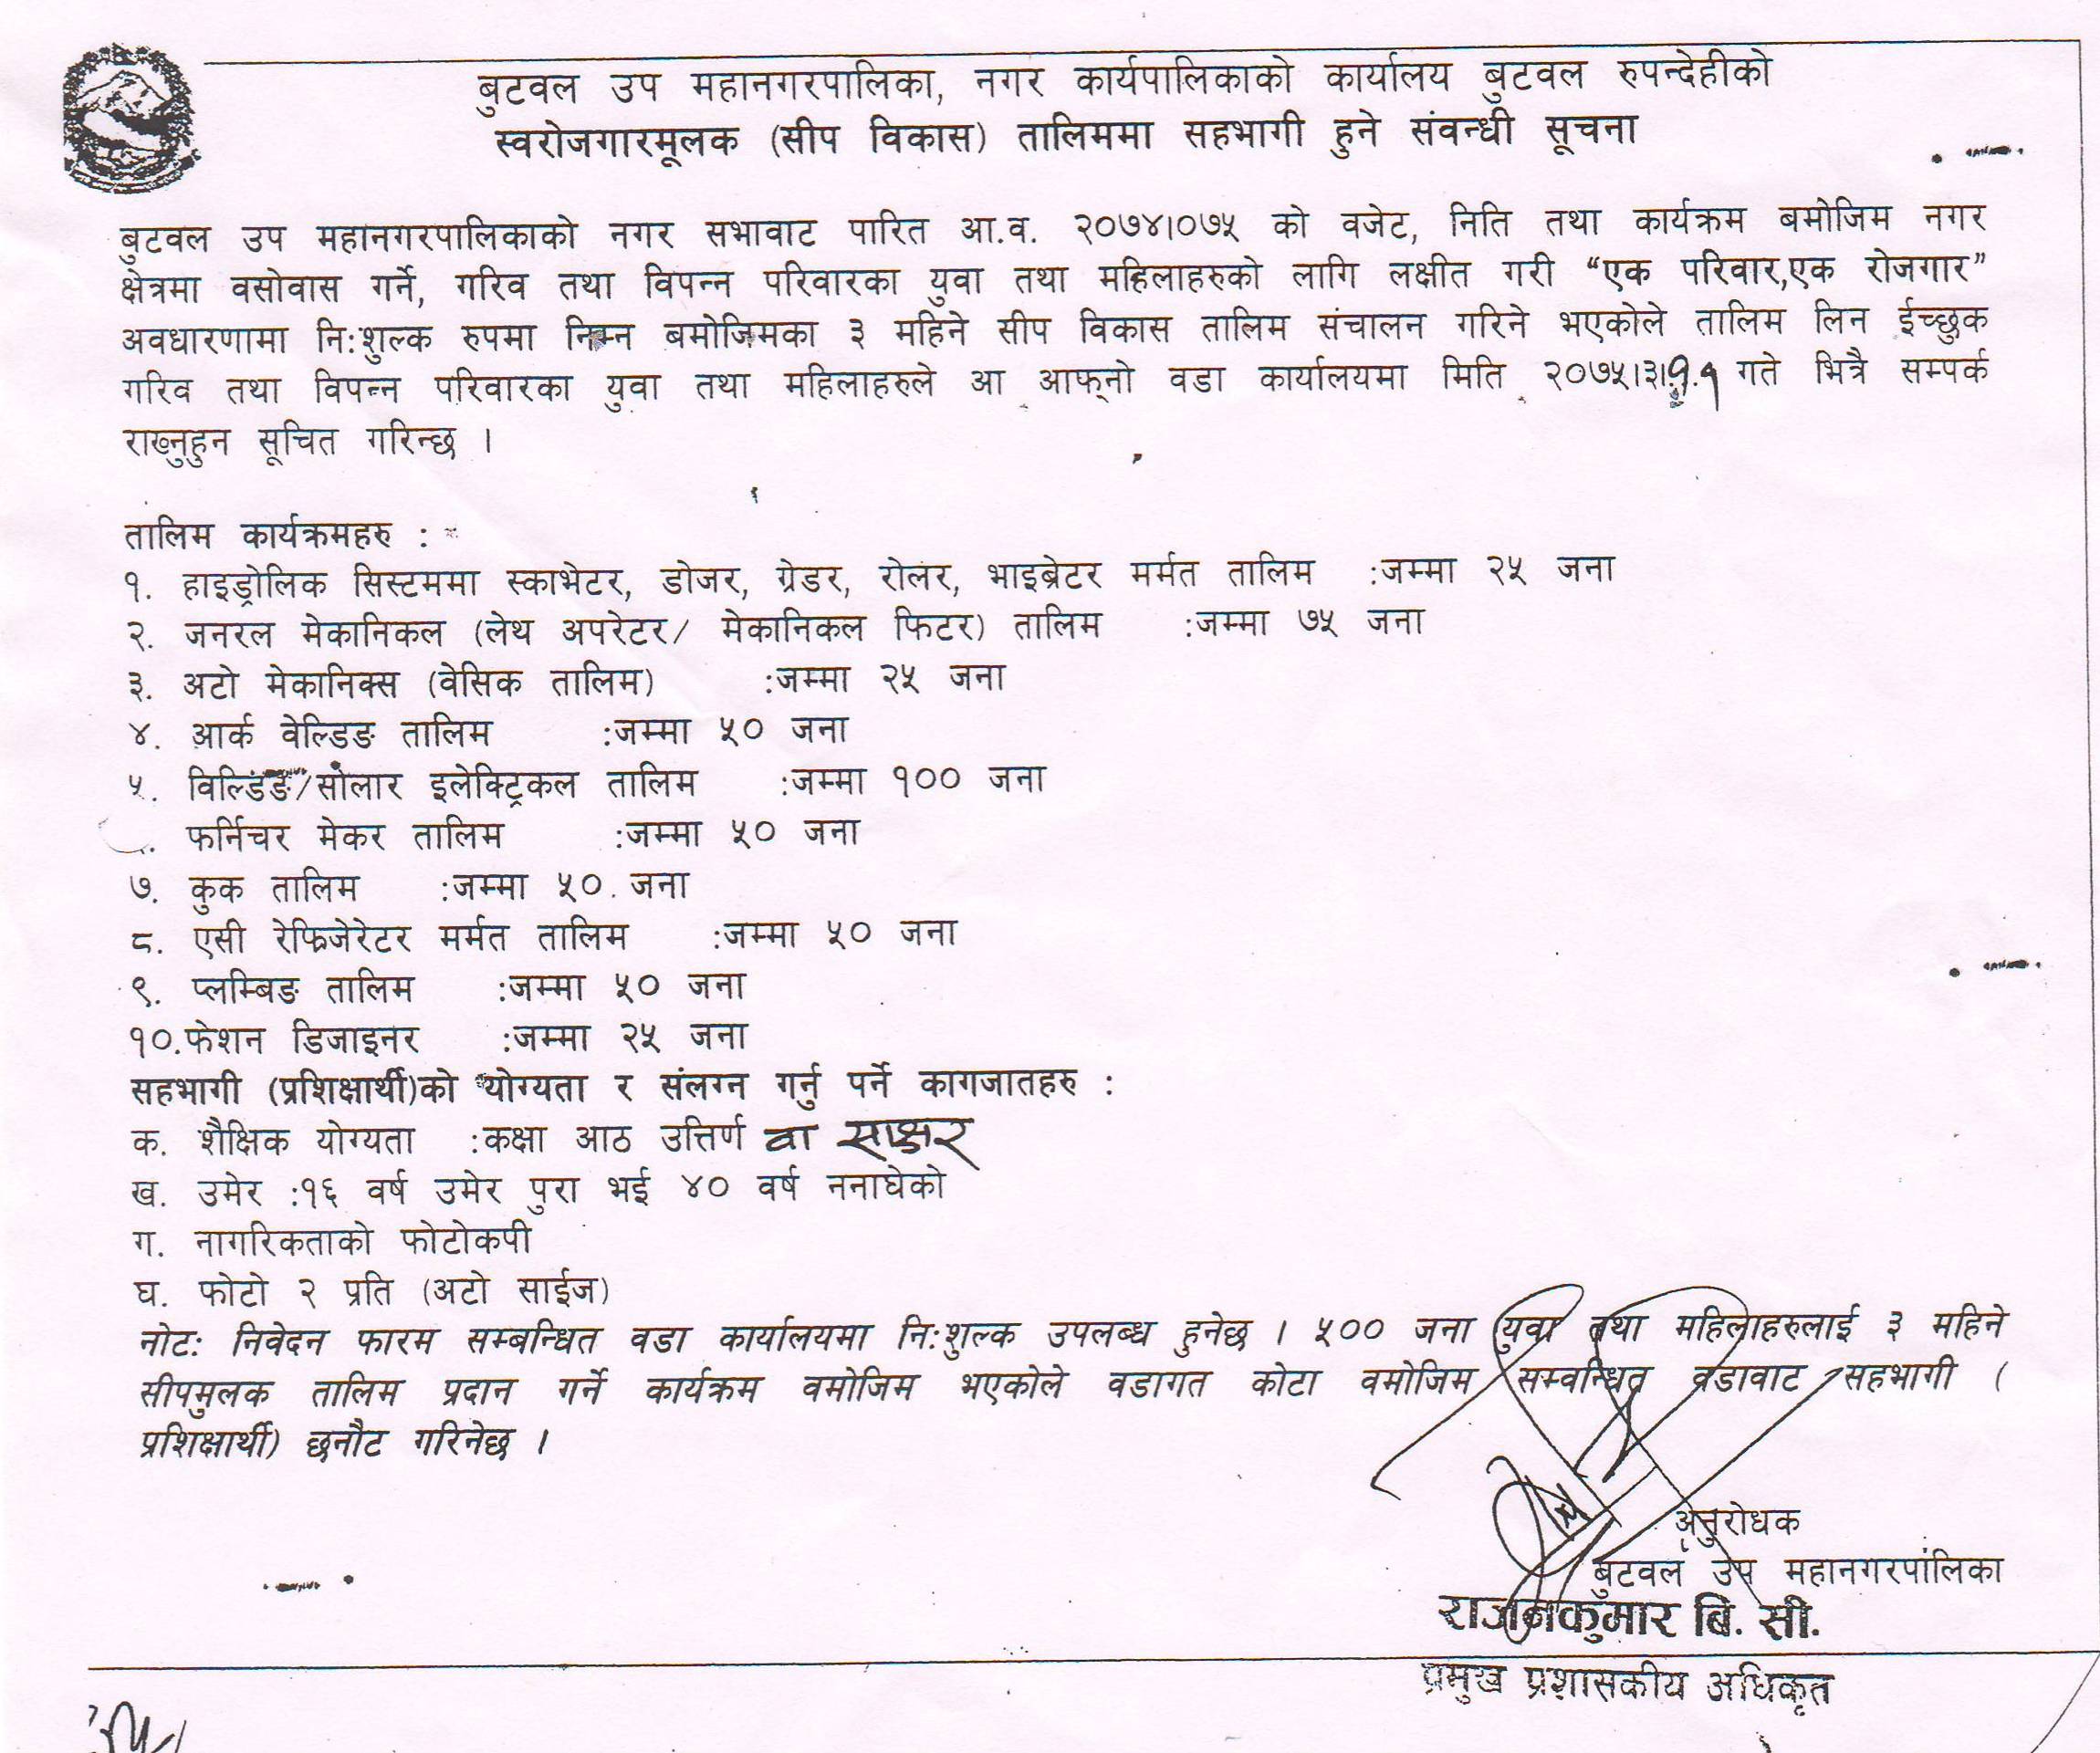 बुटवल उप महानगरपालिका, नगर कार्यपालिकाको कार्यालय बुटवल रुपन्देहीको
स्वरोजगारमूलक (सीप विकास) तालिममा सहभागी हुने संवन्धी सूचना
बुटवल उप महानगरपालिकाको नगर सभावाट पारित आ.व. २०७४।०७५ को वजेट, निति तथा कार्यक्रम बमोजिम नगर
क्षेत्रमा वसोवास गर्ने, गरिव तथा विपन्न परिवारका युवा तथा महिलाहरुको लागि लक्षीत गरी “एक परिवार,एक रोजगार”
अवधारणामा नि:शुल्क रुपमा निम्न बमोजिमका ३ महिने सीप विकास तालिम संचालन गरिने भएकोले तालिम लिन ईच्छुक
गरिव तथा विपन्न परिवारका युवा तथा महिलाहरुले आ आफ्‌नो वडा कार्यालयमा मिति गते भित्रै सम्पर्क
राख्नुहुन सूचित गरिन्छ ।
तालिम कार्यक्रमहरु :
१. हाइड्रोलिक सिस्टममा स्काभेटर, डोजर, ग्रेडर, रोलर, भाइब्रेटर मर्मत तालिम :जम्मा २५ जना
२. जनरल मेकानिकल (लेथ अपरेटर/ मेकानिकल फिटर) तालिम :जम्मा ७५ जना
३. अटो मेकानिक्स (वेसिक तालिम) :जम्मा २५ जना
४. आर्क वेल्डिङ तालिम :जम्मा ५० जना
५. विल्डिंङ/सोलार इलेक्ट्रिकल तालिम :जम्मा १०० जना
फर्निचर मेकर तालिम :जम्मा ५० जना
७. कुक तालिम :जम्मा ५० जना
८. एसी रेफ्रिजेरेटर मर्मत तालिम :जम्मा ५० जना
९. प्लम्बिङ तालिम :जम्मा ५० जना
१०.फेशन डिजाइनर :जम्मा २५ जना
सहभागी (प्रशिक्षार्थी)को योग्यता र संलग्न गर्नु पर्ने कागजातहरु :
क. शैक्षिक योग्यता :कक्षा आठ उत्तिर्ण वा साक्षर
ख. उमेर :१६ वर्ष उमेर पुरा भई ४० वर्ष ननाघेको
ग. नागरिकताको फोटोकपी
घ. फोटो २ प्रति (अटो साईज)
नोट: निवेदन फारम सम्बन्धित वडा कार्यालयमा नि:शुल्क उपलब्ध हुनेछ । ५०० जना युवा तथा महिलाहरुलाई ३ महिने
सीपमुलक तालिम प्रदान गर्ने कार्यक्रम वमोजिम भएकोले वडागत कोटा वमोजिम सम्वन्धित वडावाट सहभागी (
प्रशिक्षार्थी) छनौट गरिनेछ ।
अनुरोधक
बुटवल उप महानगरपालिका
राजनकुमार बि. सी.
प्रमुख प्रशासकीय अधिकृत